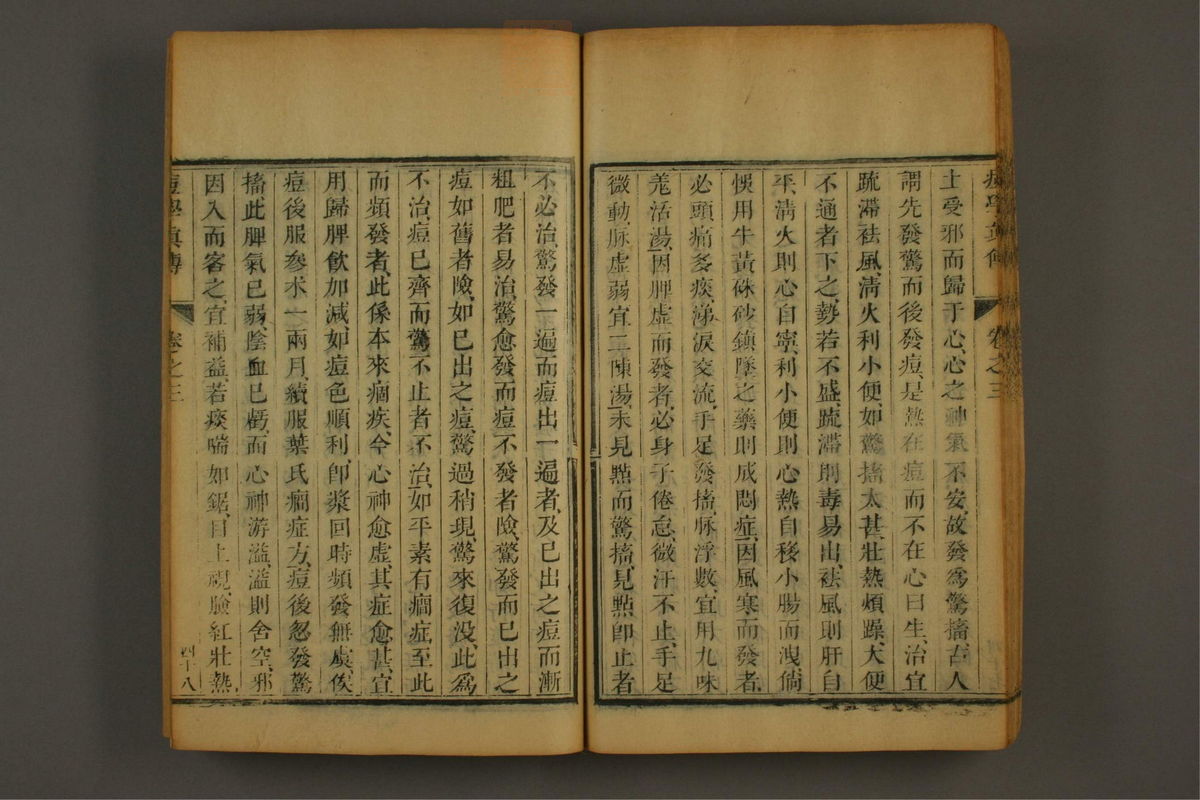 痘學眞傳 卷之三
土受邪而歸于心心之神氣不安故發爲驚搐古人
謂先發驚而後發痘是熱在痘而不在心曰生治宜
疏滯祛風清火利小便如驚搐太甚壯熱煩躁大便
不通者下之勢若不盛疏滯則毒易出祛風則肝自
平清火則心自寧利小便則心熱自移小腸而洩倘
悞用牛黃硃砂鎮墜之藥則成悶症因風寒而發者
必頭痛多痰涕淚交流手足發搐脉浮數宜用九味
羗活湯因脾虛而發者必身子倦怠微汗不止手足
微動脉虛弱宜二陳湯未見㸃而驚搐見㸃卽止者
不必治驚發一遍而痘出一遍者及已出之痘而漸
粗肥者易治驚愈發而痘不發者險驚發而已出之
痘如舊者險如已出之痘驚過稍現驚來復没此爲
不治痘已齊而驚不止者不治如平素有癇症至此
而頻發者此係本來痼疾今心神愈虛其症愈甚宜
用歸脾飲加減如痘色順利卽漿回時頻發無虞俟
痘後服參朮一兩月續服葉氏癇症方痘後忽發驚
搐此脾氣已弱陰血已虧而心神游溢溢則舍空邪
因入而客之宜補益若痰喘如鋸目上視臉紅壯熱
痘學眞傳 卷之三 四十八